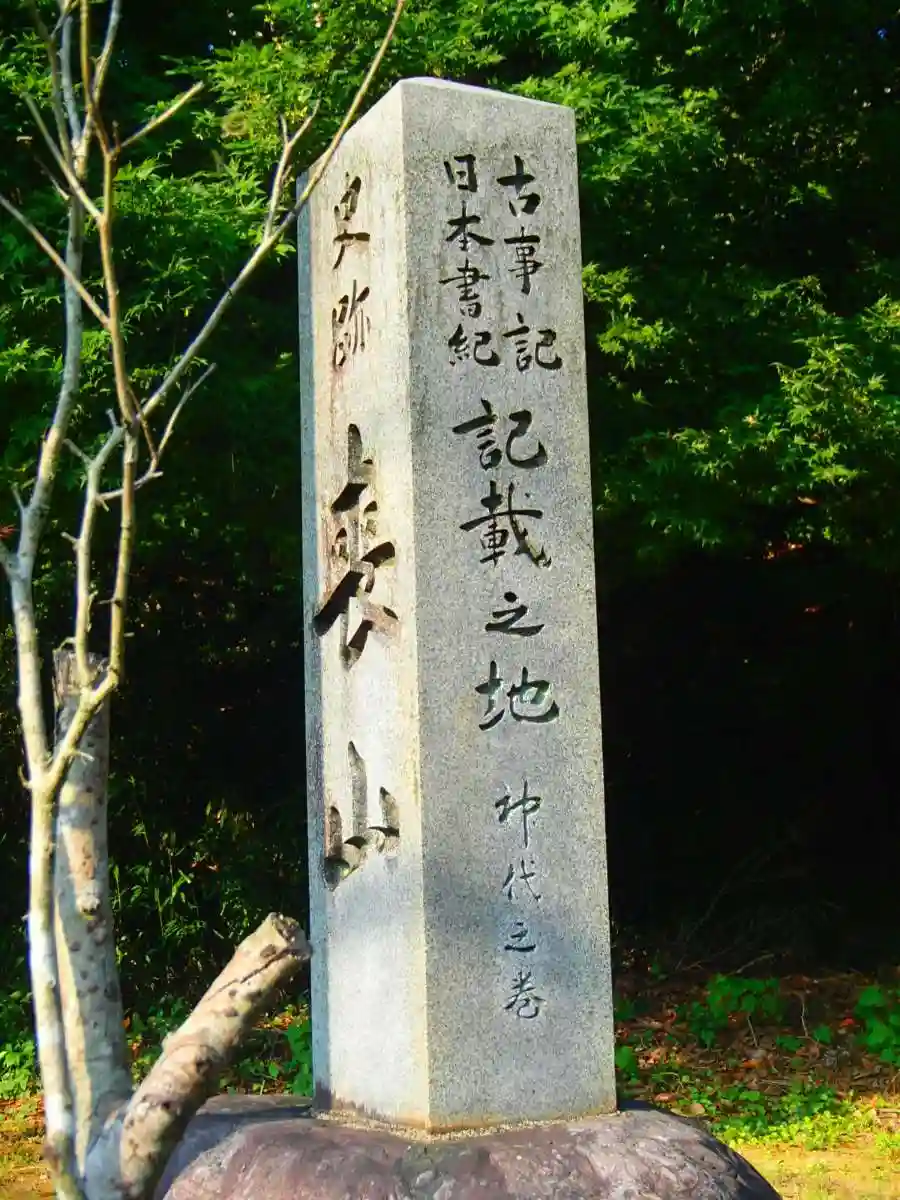 古事記
日本書紀
記載之地
神代之巻
史跡
喪山